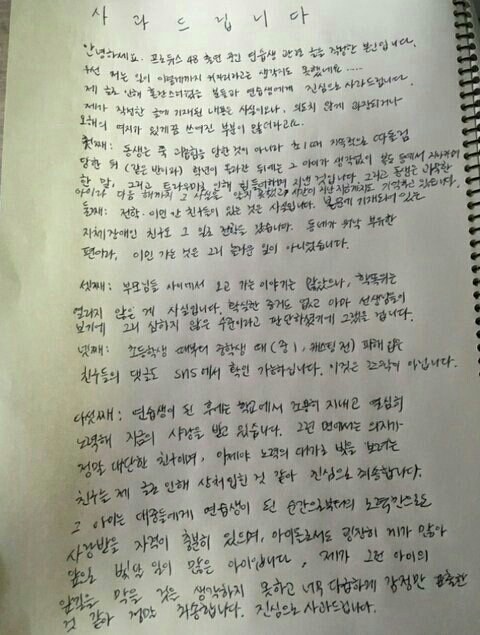 사 과 드 립 니 다
안녕하세요. 프로듀스 48 출연 중인 연습생 관련 글을 작성한 본인입니다.
우선 저는 일이 이렇게까지 커지리라고는 생각지도 못했네요.....
제 글로 인해 혼란스러웠을 분들과 연습생에게 진심으로 사과드립니다.
제가 작성한 글에 기재된 내용은 사실이오나, 의도치 않게 과장되거나
오해의 여지가 있게끔 쓰여진 부분이 많더라고요.
첫째: 동생은 쭉 괴롭힘을 당한 것이 아니라 초1때 지속적으로 따돌림
당한 뒤 (같은 반이라) 학년이 올라간 뒤에는 그 아이가 생각없이 복도 등에서
한 말, 그리고 트라우마로 인해 힘들어하며 지낸 것입니다. 그리고 동생은
둘째: 전학, 이민 간 친구들이 있는 것은 사실입니다. 본문에 기재되어 있는
지체장애인 친구도 그 일로 전학을 갔습니다. 동네가 워낙 부유한
편이라, 이민 가는 것은 그리 놀라운 일이 아니었습니다.
셋째: 부모님들 사이에서 오고 가는 이야기는 많았으나, 학폭위는
열리지 않은 게 사실입니다. 확실한 증거도 없고 아마 선생님들이
보기에 그리 심하지 않은 수준이라고 판단하셨기에 그랬을 겁니다.
넷째: 초등학생 때부터 중학생 때 (중1, 캐스팅 전) 피해 입은
친구들의 댓글도 SNS에서 확인 가능하십니다. 이것은 조작이 아닙니다.
다섯째: 연습생이 된 후에는 학교에서 조용히 지내고 열심히
노력해 지금의 사랑을 받고 있습니다. 그런 면에서는 의지가
정말 대단한 친구이며, 이제야 노력의 대가로 빛을 보려는
친구는 제 글로 인해 상처입힌 것 같아 진심으로 죄송합니다.
그 아이는 대중들에게 연습생이 된 순간으로부터의 노력만으로도
사랑받을 자격이 충분히 있으며, 아이돌로서도 굉장히 끼가 많아
앞으로 빛날 일이 많은 아이입니다. 제가 그런 아이의
앞길을 막을 것은 생각하지 못하고 너무 다급하게 감정만 표출한
것 같아 정말 죄송합니다. 진심으로 사과드립니다.